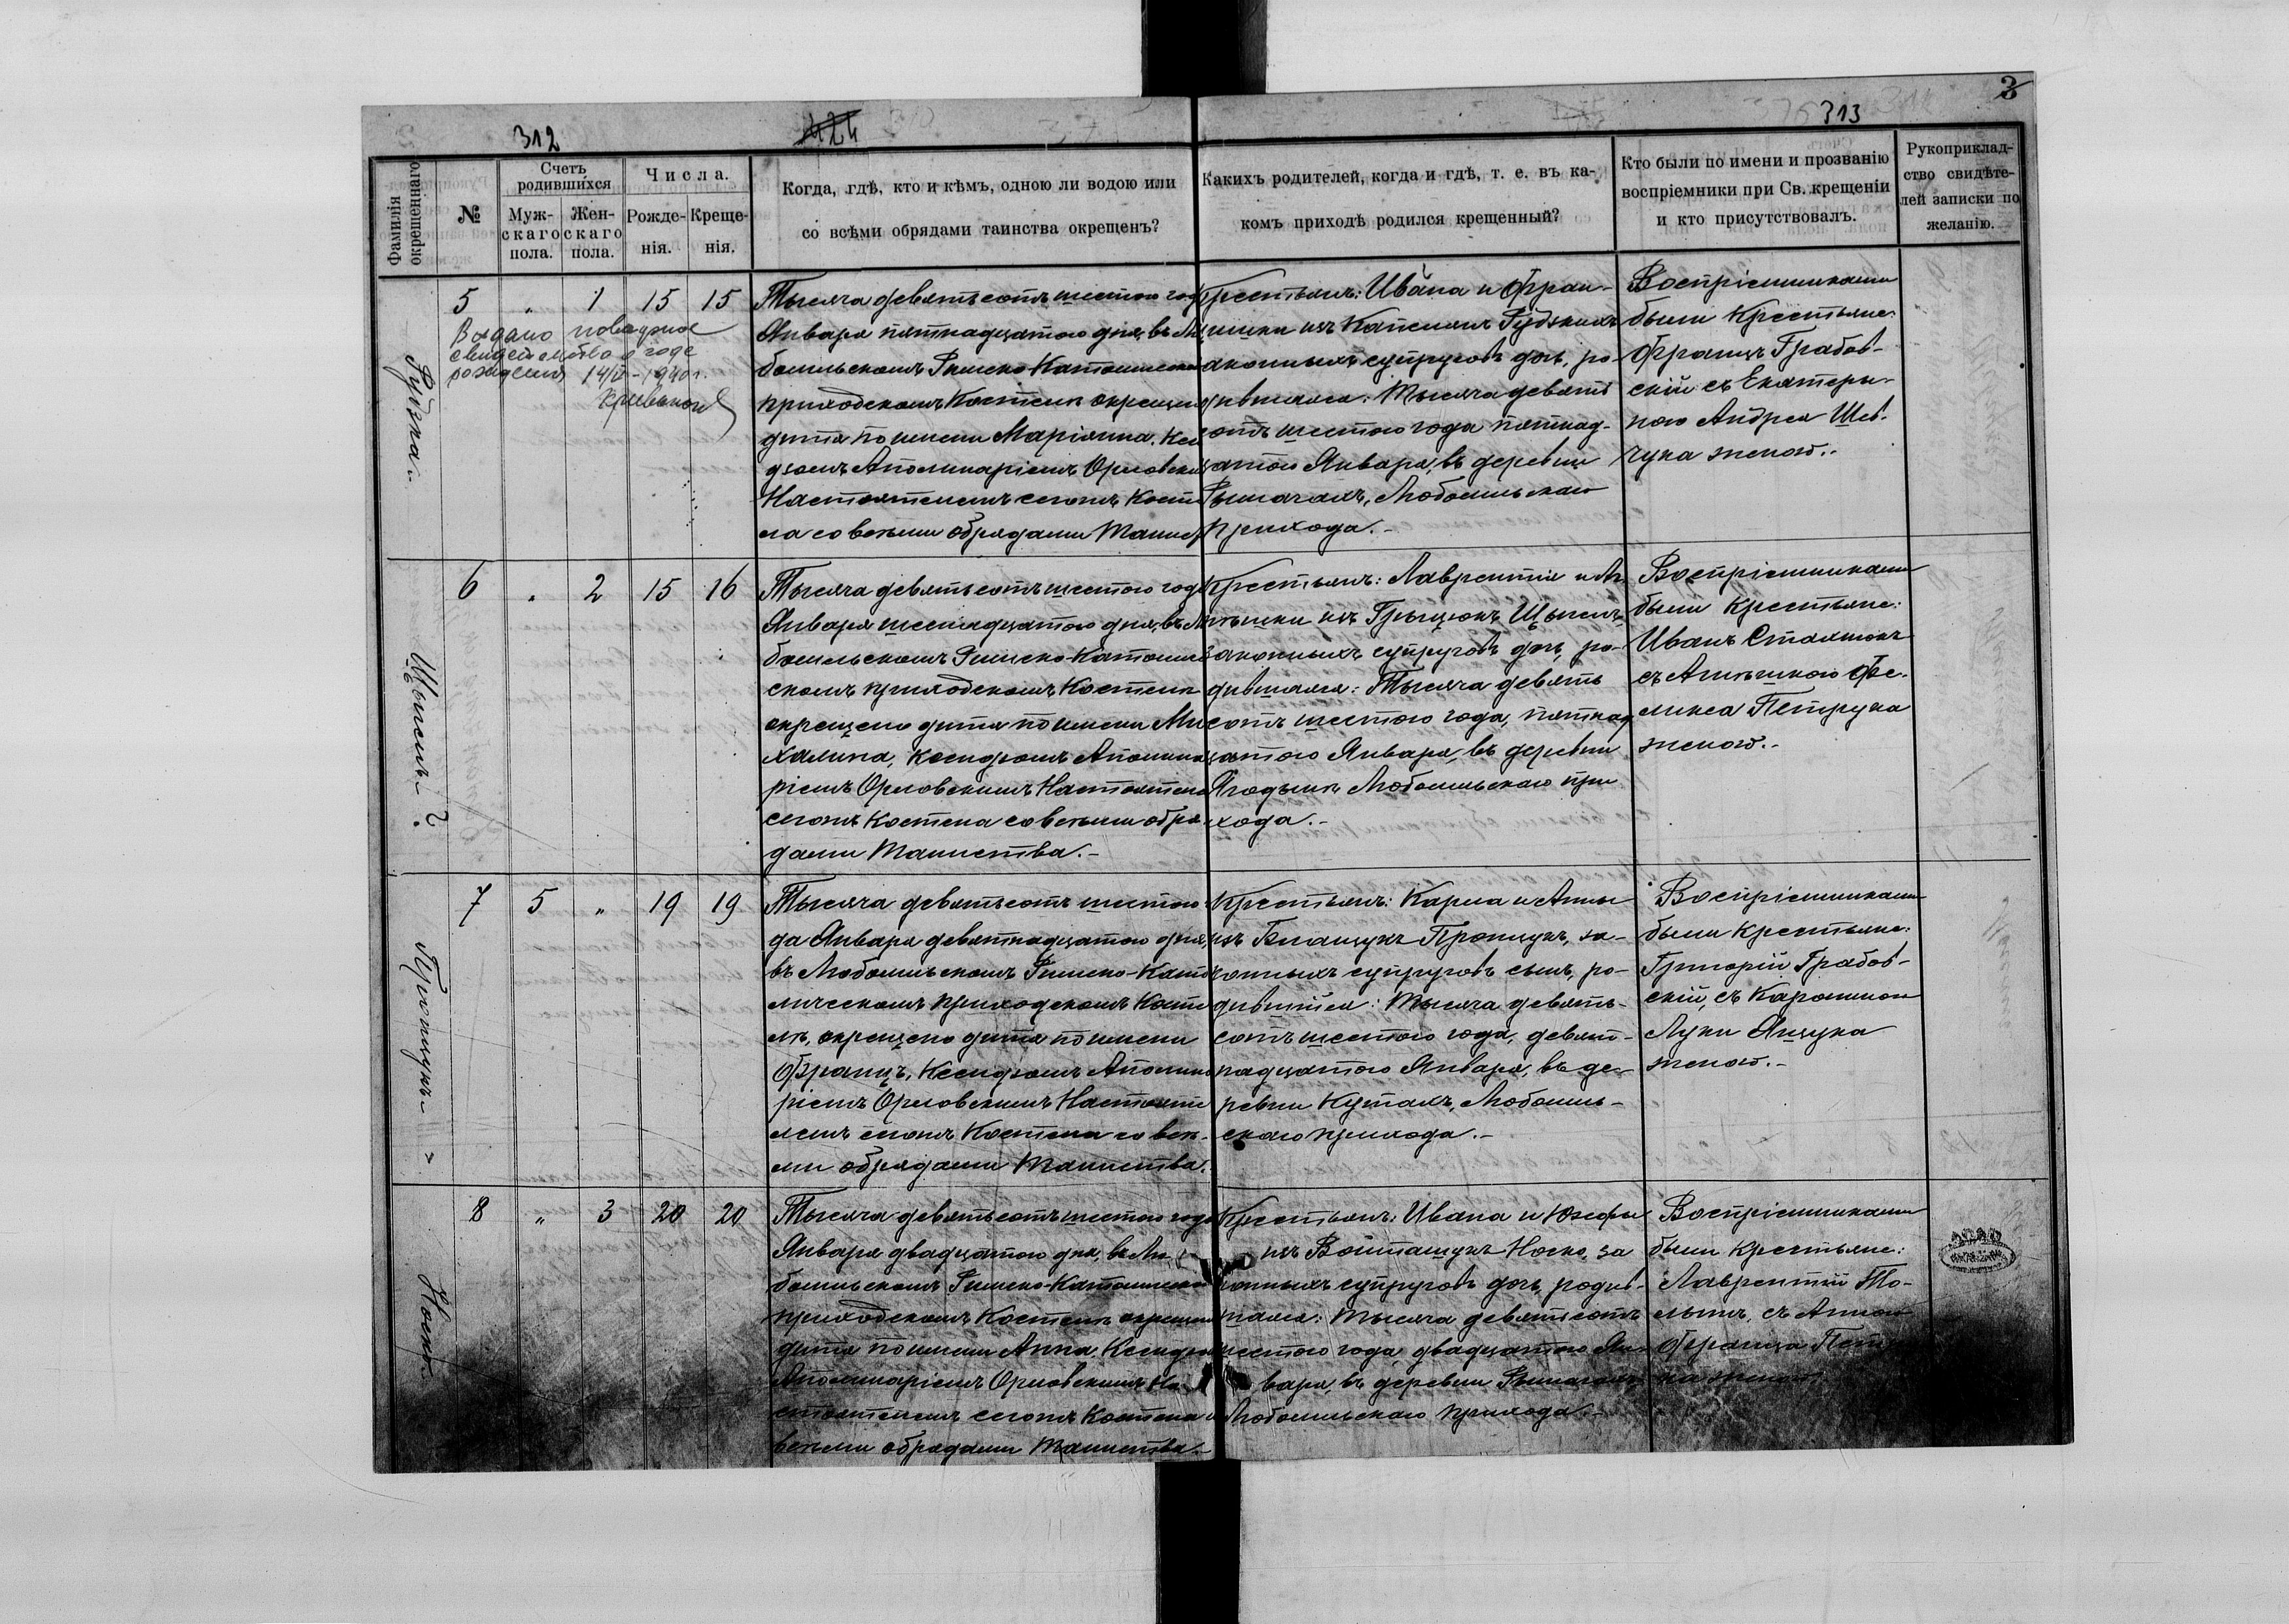 312
424
313
3
Фамилія окрещеннаго
№
Счетъ родившихся
Мужскаго пола.
Женскаго пола.
Числа.
Рожденія.
Крещенія.
Когда, гдѣ, кто и кѣмъ, одною ли водою или
со всѣми обрядами таинства окрещенъ?
Какихъ родителей, когда и гдѣ, т. е. въ ка-
комъ приходѣ родился крещенный?
Кто были по имени и прозванію
воспріемники при Св. крещеніи
и кто присутствовалъ.
Рукоприклад-
ство свидѣте-
лей записки по
желанію.
5 " 1 15 15
Выдано повторное
свидетельство о годе
рождения 14/V-1940 г.
Тысяча девятьсотъ шестого год
Января пятнадцатого дня, въ Лю
бомльскомъ Римско-Католическ
приходскомъ Костелѣ окрещен
дитя по имени Маріянна, Ксен
дзомъ Аполинаріемъ Орловским
Настоятелемъ сегожъ Косте
ла со всѣми обрядами Таинст
Крестьянъ: Ивана и Фран-
цишки изъ
законныхъ супруговъ дочь, ро-
дившаяся: Тысяча девять
сотъ шестого года пятнад-
цатого Января, въ деревни
Рымачахъ, Любомльскаго
прихода.-
Воспріемниками
были Крестьяне:
Францъ Грабов-
скій съ Екатери-
ною Андрея Шев-
чука женою.-
6 " 2 15 16
Тысяча девятьсотъ шестого год
Января шестнадцатого дня, въ Лю
бомльскомъ Римско-Католиче
скомъ приходскомъ Костелѣ
окрещено дитя по имени Ми
халина, Ксендзомъ Аполина
ріемъ Орловскимъ Настоятеле
сегожъ Костела со всѣми обря-
дами Таинства.-
Крестьянъ: Лаврентія и Аг-
нѣшки изъ Грыцюкъ
законныхъ супруговъ дочь, ро-
дившаяся: Тысяча девять
сотъ шестого года, пятнад
цатого Января, въ деревни
Ягодынѣ Любомльскаго при
хода.-
Воспріемниками
были Крестьяне:
Иванъ
съ Агнѣшкою Фе-
ликса Петрука
женою.-
Пронцукъ
7 5 " 19 19
Тысяча девятьсотъ шестого
да Января девятнадцатого дня,
въ Любомльскомъ Римско-Като
лическомъ приходскомъ Косте
лѣ, окрещено дитя по имени
Францъ, Ксендзомъ Аполина
ріемъ Орловскимъ Настояте
лемъ сегожъ Костела со всѣ-
ми обрядами Таинства.
Крестьянъ: Карла и Анны
изъ Блащукъ Пронцукъ, за-
конныхъ супруговъ сынъ, ро-
дившійся: Тысяча девять-
сотъ шестого года, девят-
надцатого Января, въ де-
ревни Кутахъ, Любомль-
скаго прихода.-
Воспріемниками
были Крестьяне:
Григорій Грабов-
скій, съ Каролиною
Луки Яцука
женою.-
Носко
8 " 3 20 20
Тысяча девятьсотъ шестого года
Января двадцатого дня, въ Лю
бомльскомъ Римско-Католическо
приходскомъ Костелѣ окрещен
дитя по имени Анна, Ксендзо
Аполинаріемъ Орловскимъ На
стоятелемъ сегожъ Костела
всѣми обрядами Таинства.-
Крестьянъ: Ивана и Юзефы
изъ Войташукъ Носко, за
конныхъ супруговъ дочь, родив-
шаяся: Тысяча девятьсотъ
шестого года, двадцатого Ян-
варя, въ деревни Рымачахъ
Любомльскаго прихода.-
Воспріемниками
были Крестьяне:
Лаврентій
съ Анною
Франца
женою